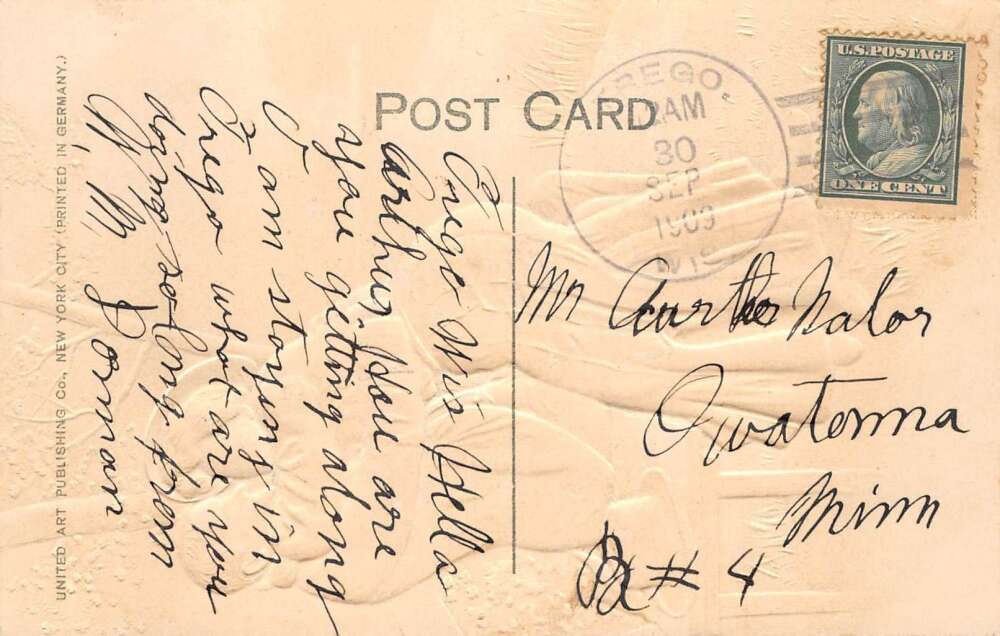 POST CARD
U.S. POSTAGE
ONE CENT
TREGO,
AM
30
SEP
1909
WIS
Trego Wis Hello
Arthur How are
you getting along
I am stoping in
Trego what are you
doing so long from
W. M. Dorman
Mr Aurther Nalor
Owatonna
Minn
Rd # 4
UNITED ART PUBLISHING CO., NEW YORK CITY (PRINTED IN GERMANY.)